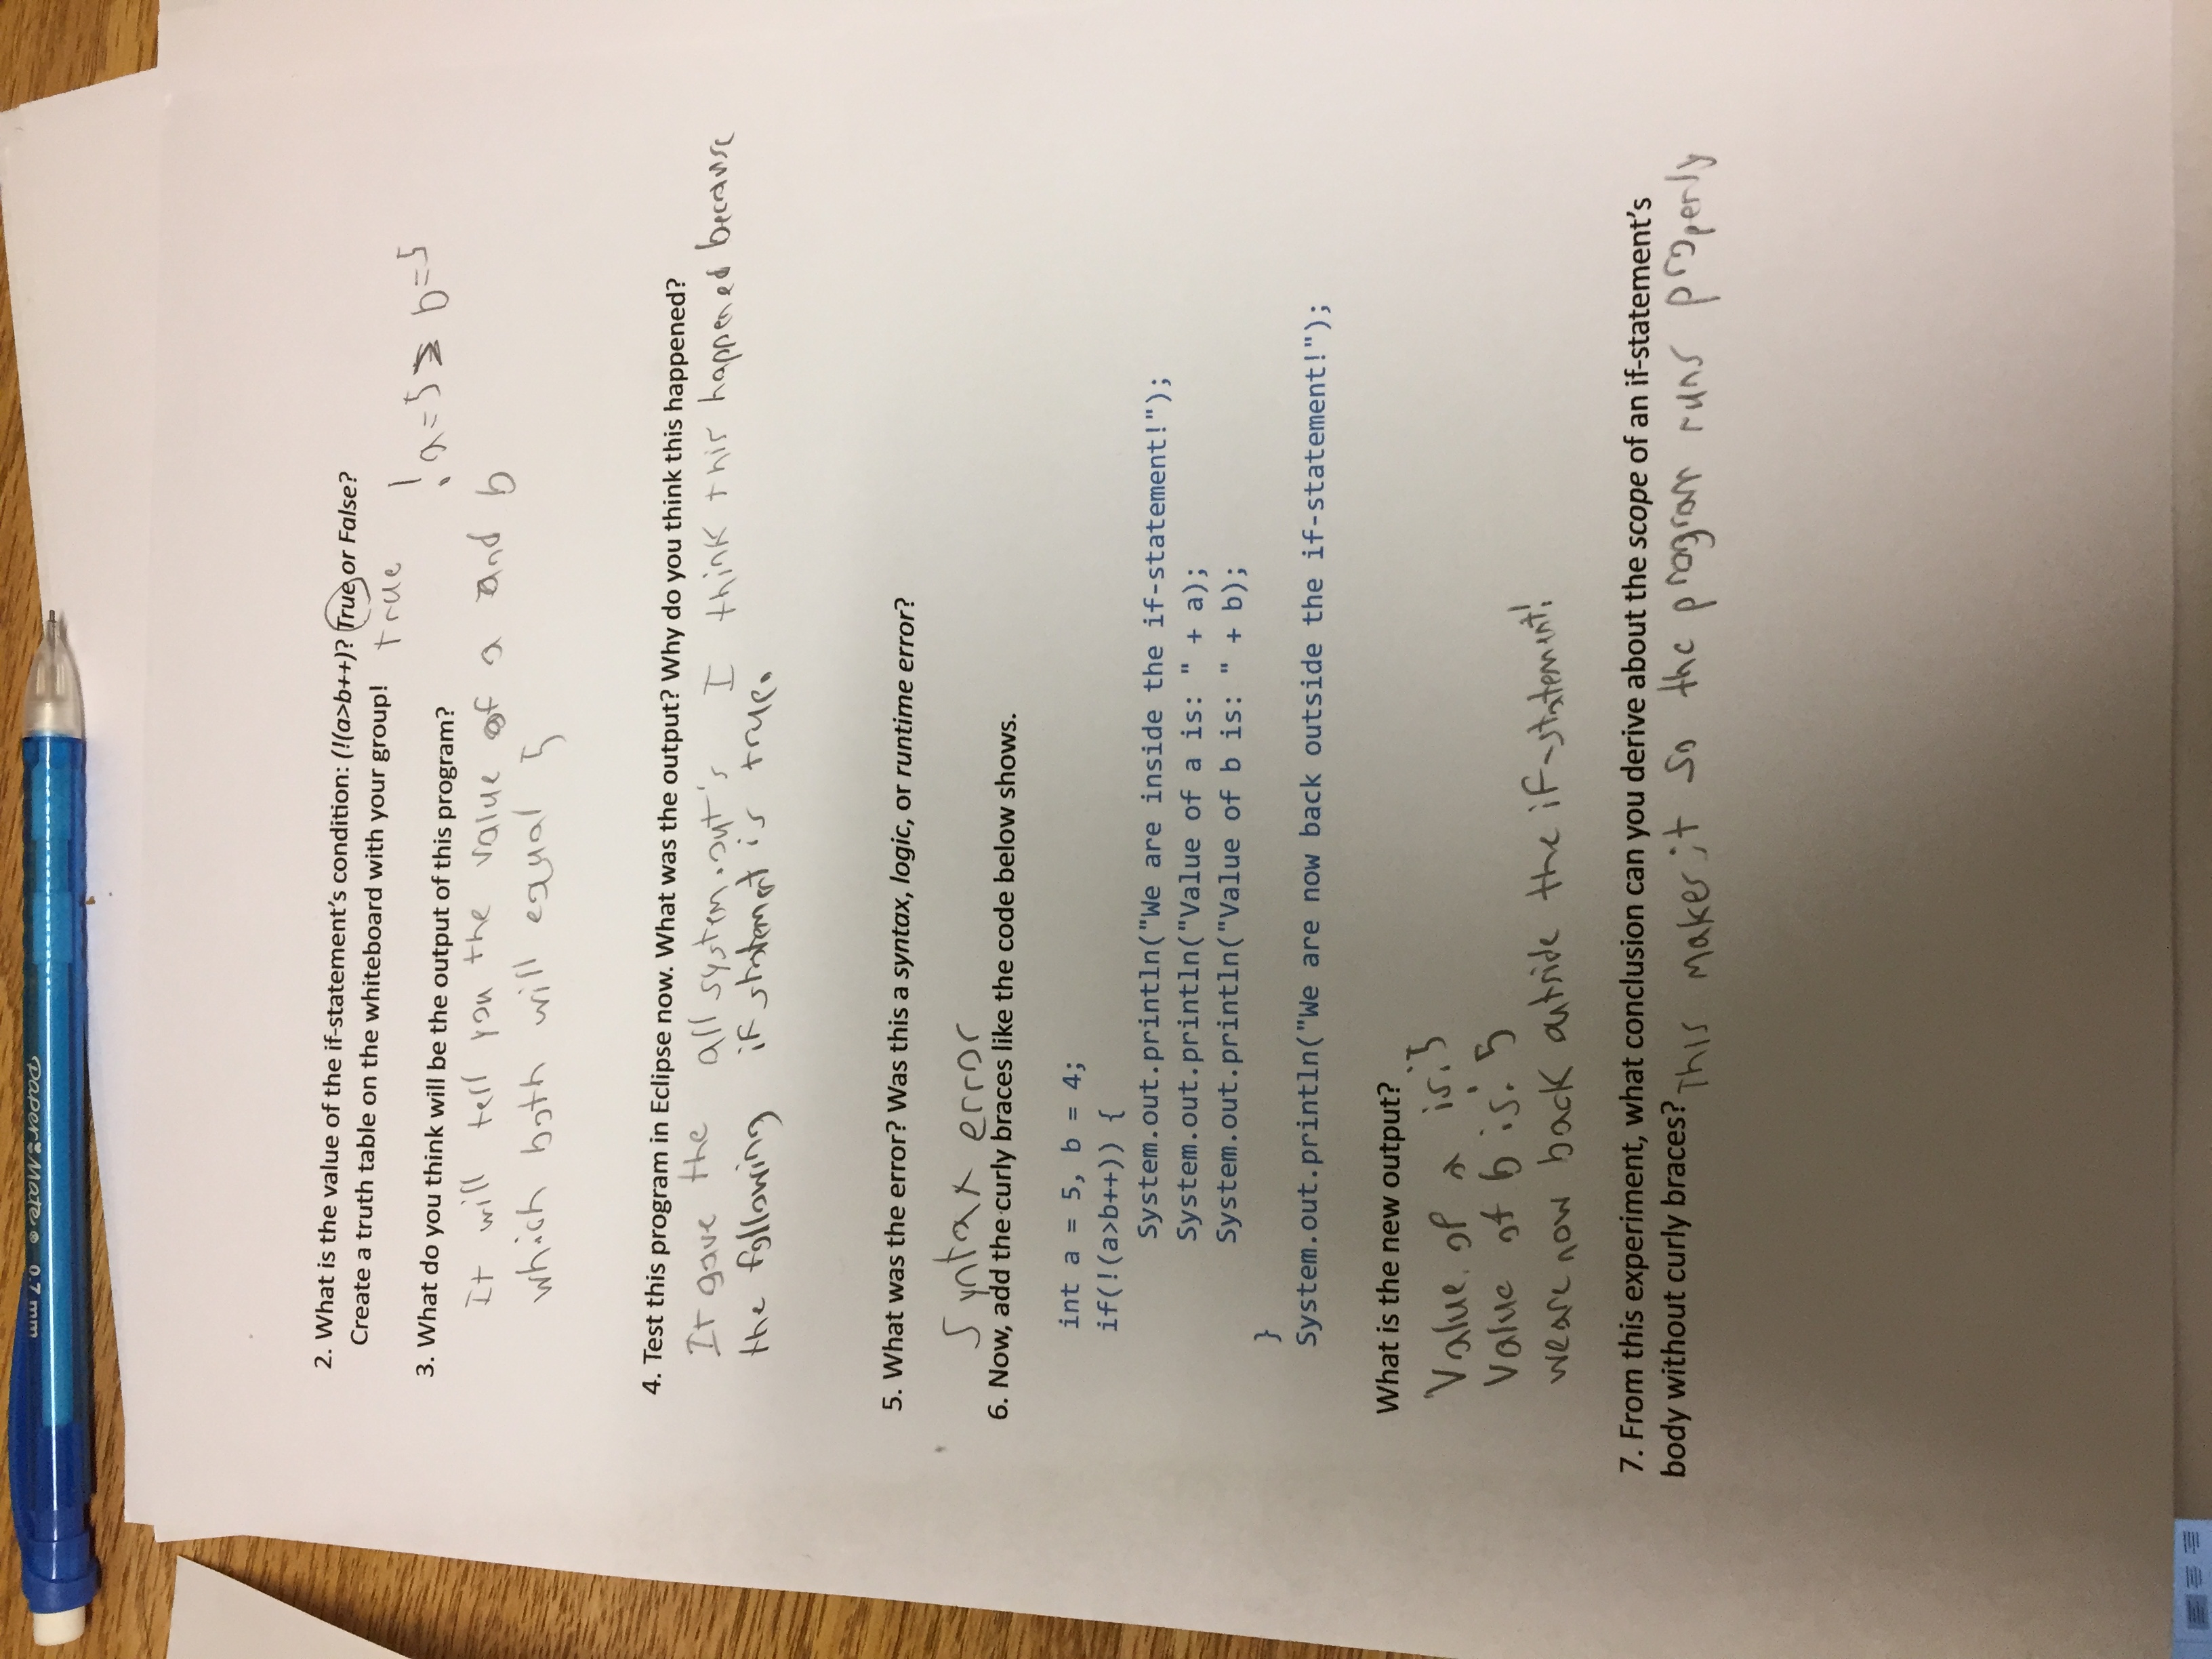 Paper Mate ® 0.7 mm
2. What is the value of the if-statement's condition: (!(a>b++)? True or False?
Create a truth table on the whiteboard with your group!
true
! a=5 > b=5
3. What do you think will be the output of this program?
It will tell you the value of a and b
which both will equal 5
4. Test this program in Eclipse now. What was the output? Why do you think this happened?
It gave the all system.out's I think this happened because
the following if statement is true.
5. What was the error? Was this a syntax, logic, or runtime error?
Syntax error
6. Now, add the curly braces like the code below shows.
int a = 5, b = 4;
if(!(a>b++)) {
System.out.println("We are inside the if-statement!");
System.out.println("Value of a is: " + a);
System.out.println("Value of b is: " + b);
}
System.out.println("We are now back outside the if-statement!");
What is the new output?
Value of a is: 5
Value of b is: 5
we are now back outside the if-statement!
7. From this experiment, what conclusion can you derive about the scope of an if-statement's
body without curly braces? This makes it so the program runs properly